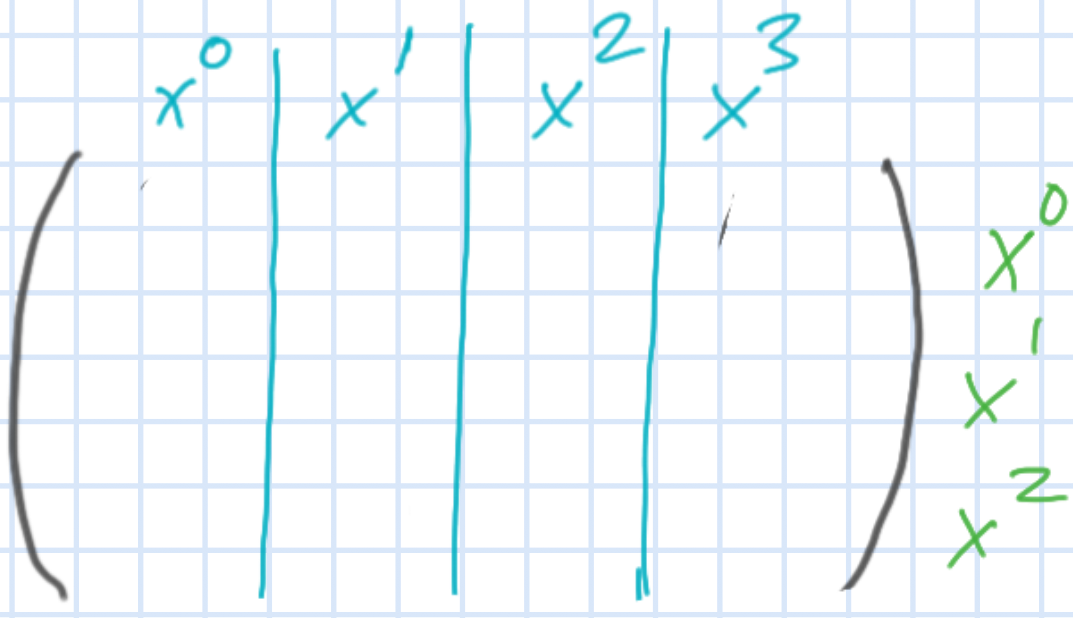 x⁰ | x¹ | x² | x³
x⁰
x¹
x²